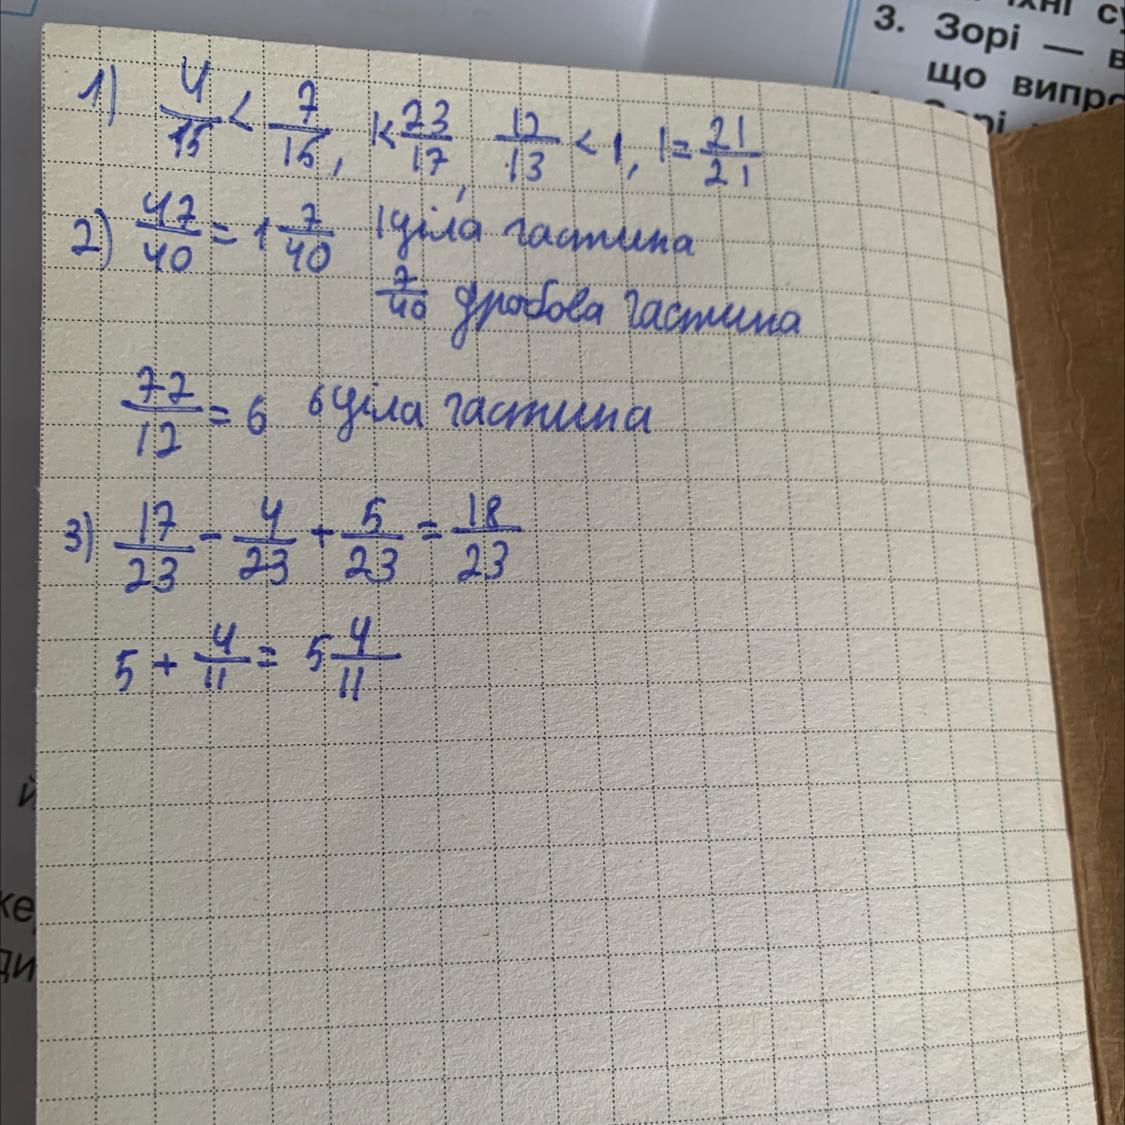 їхні
3. Зорі — в
що випро
1) 4/15 < 7/15, 1<23/17, 12/13 < 1, 1=21/21
2) 47/40 = 1 7/40 1 ціла частина
7/40 дробова частина
77/12 = 6 6 ціла частина
3) 17/23 - 4/23 + 5/23 = 18/23
5 + 4/11 = 5 4/11